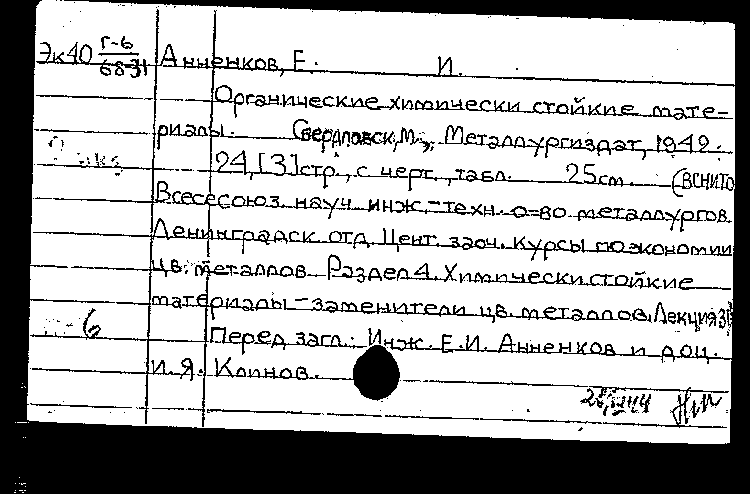 Эк40 Г-6
68-31 Анненков, Е. И.
Органические химически стойкие мате-
риалы. Свердловск, М., Металлургиздат, 1942.
24, [3] стр., с черт., табл. 25 см. (ВСНИТО
Всесоюз. науч. инж.-техн. о-во металлургов.
Ленинградск. отд. Цент. заоч. курсы по экономии
цв. металлов. Раздел 4. Химически стойкие
материалы-заменители цв. металлов. Лекция
-6
Перед загл.: Инж. Е.И. Анненков и доц.
И.Я. Клинов.